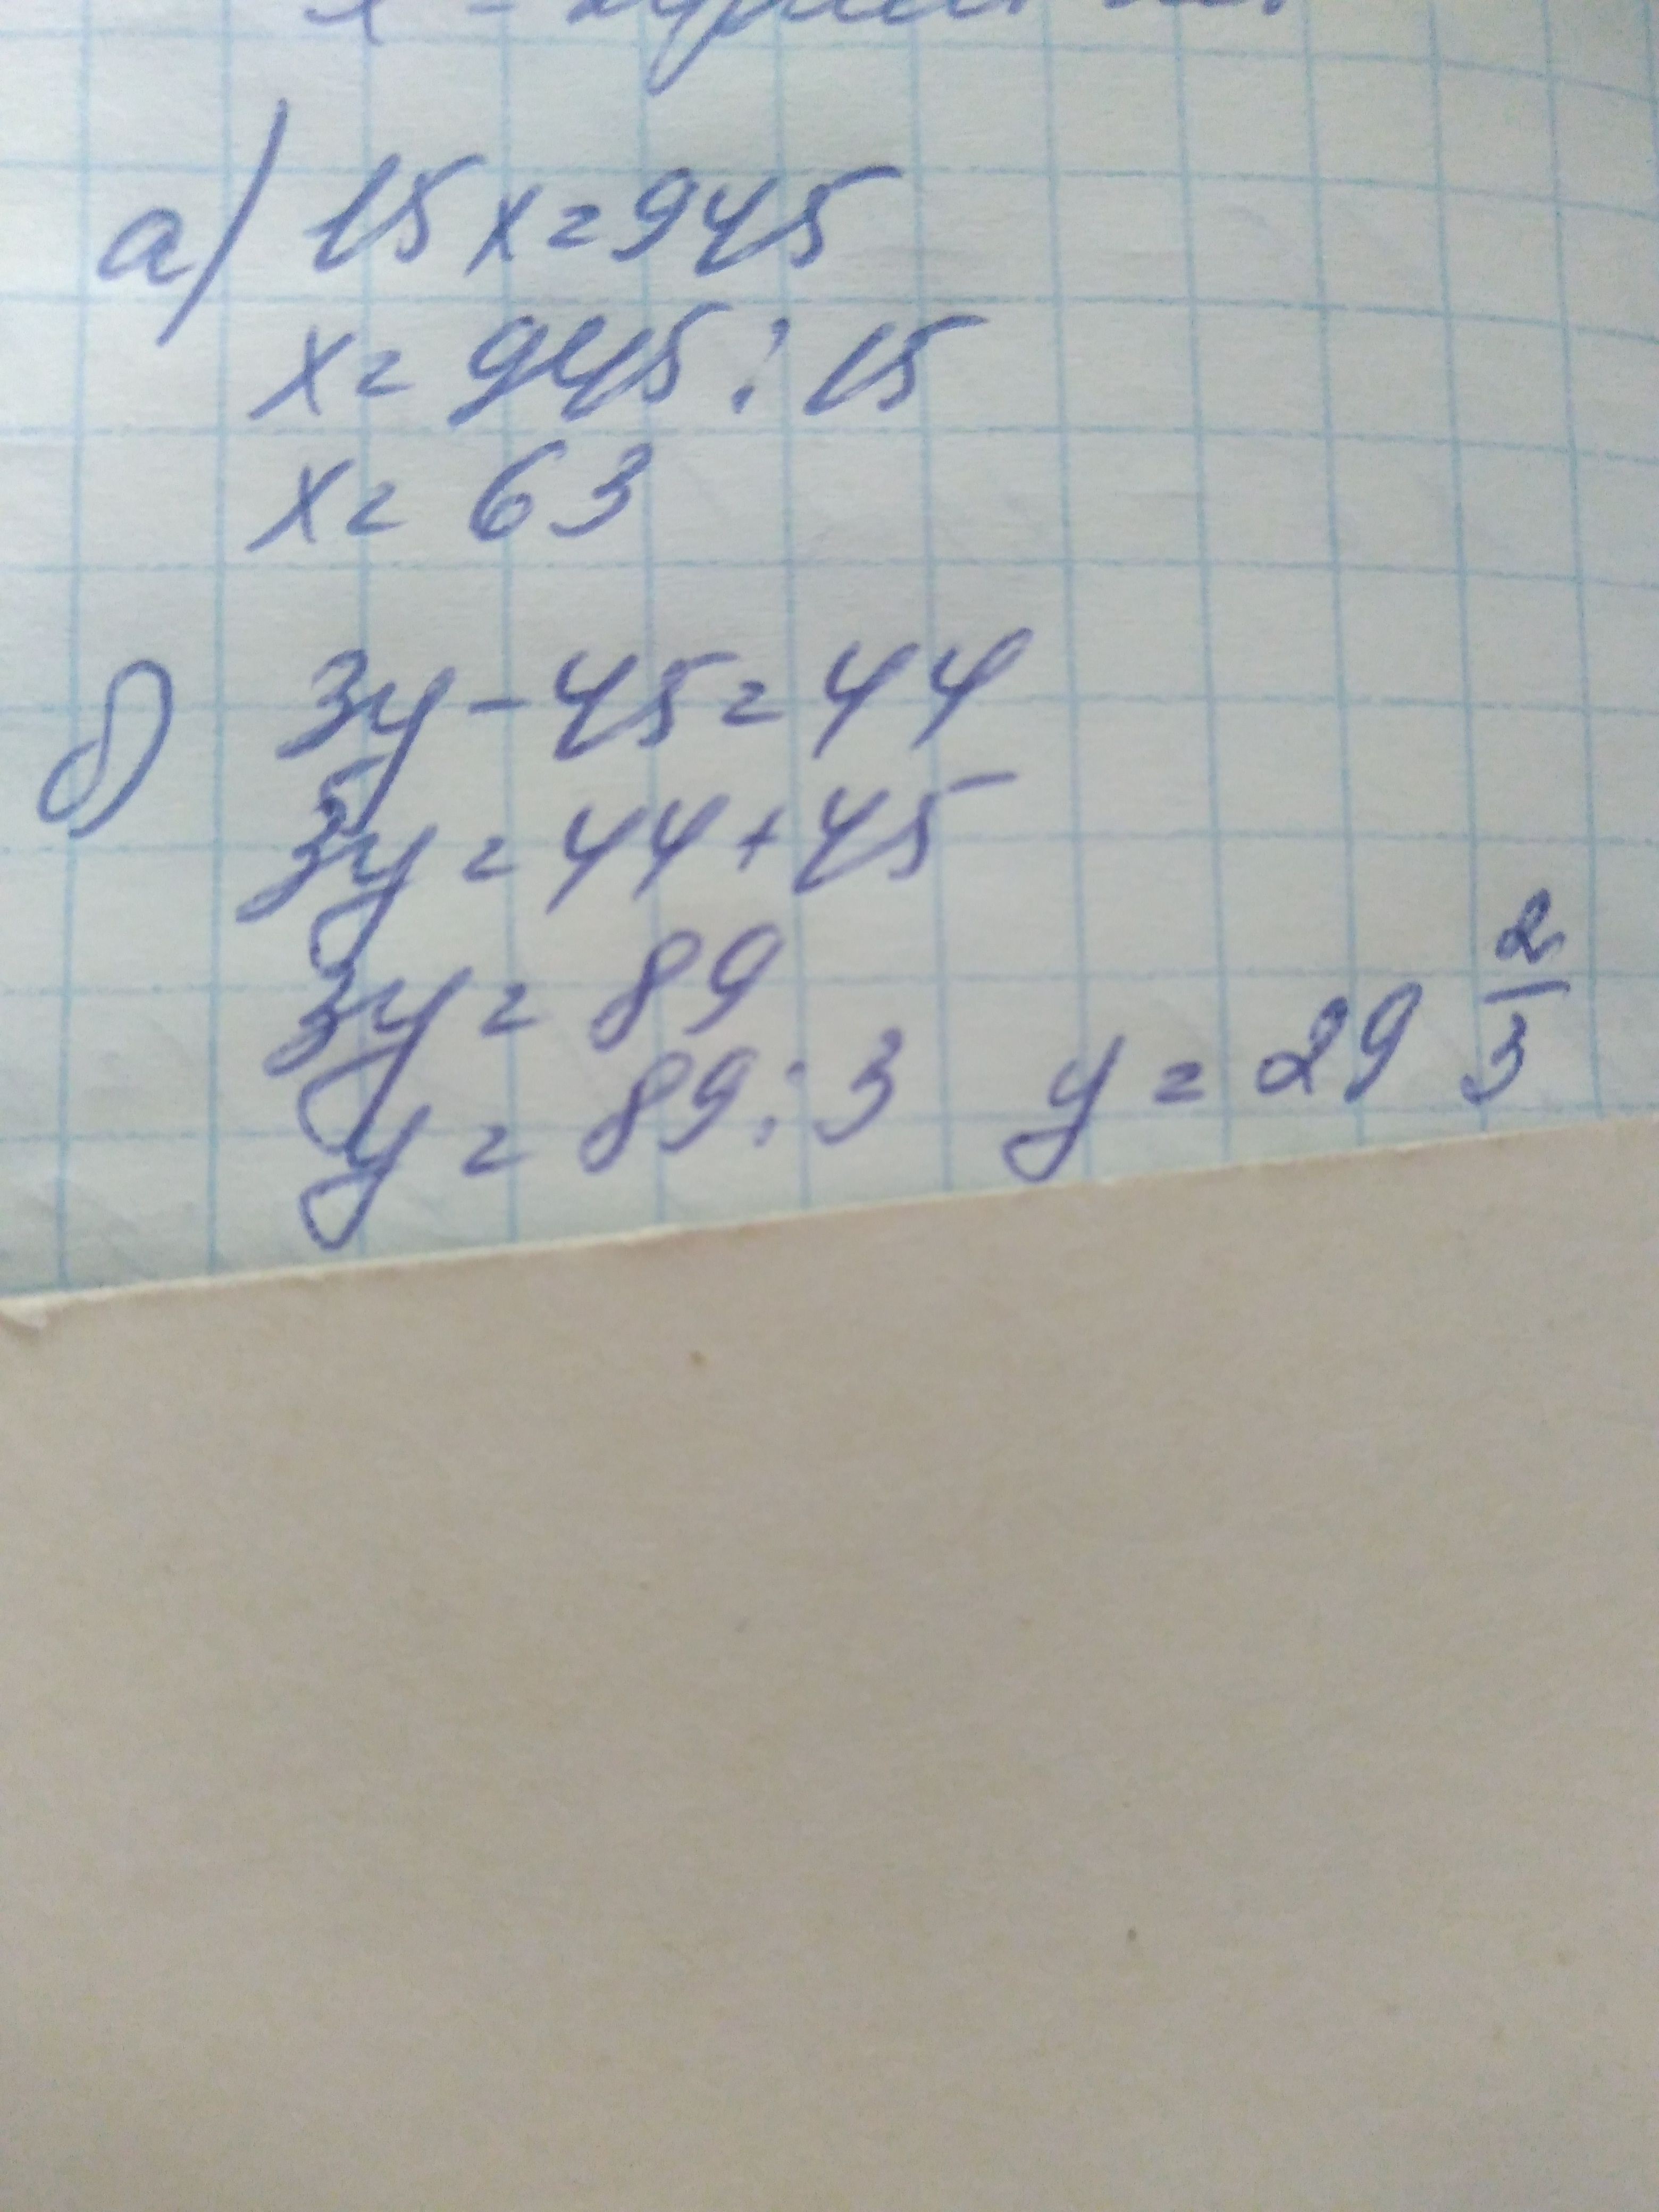 а) 15x=945
x=945:15
x=63
б) 3y-45=44
3y=44+45
3y=89
y=89:3 y=29 2/3